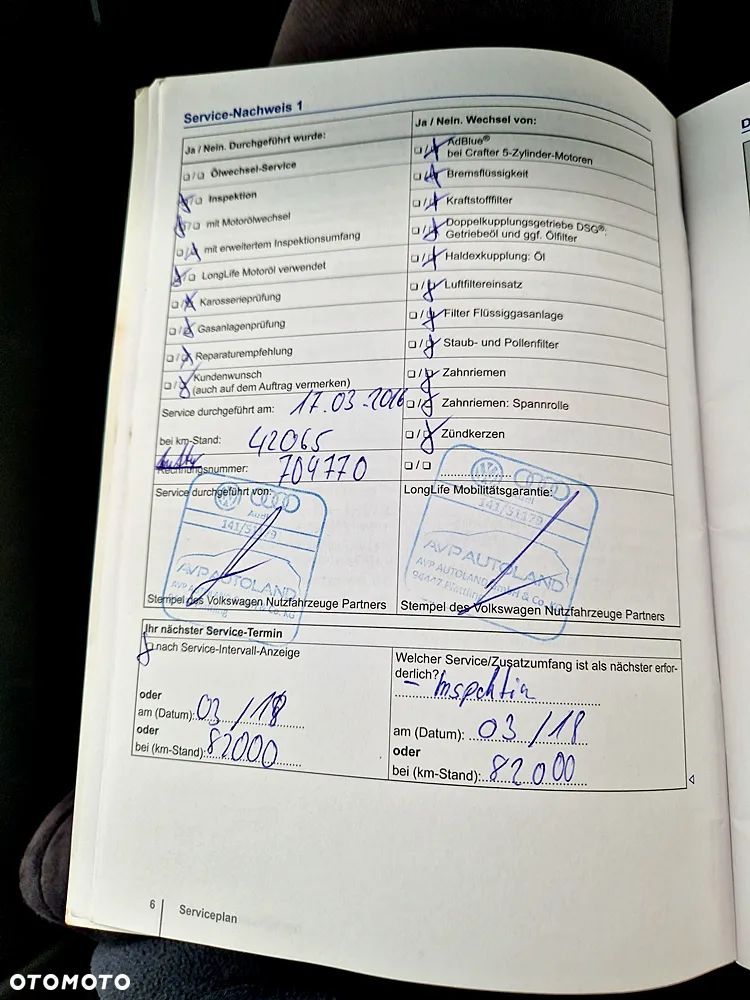 Service-Nachweis 1
Ja / Nein. Durchgeführt wurde:
Ölwechsel-Service
Inspektion
mit Motorölwechsel
mit erweitertem Inspektionsumfang
LongLife Motoröl verwendet
Karosserieprüfung
Gasanlagenprüfung
Reparaturempfehlung
Kundenwunsch
(auch auf dem Auftrag vermerken)
Service durchgeführt am: 17.03.2016
bei km-Stand: 42065
Rechnungsnummer: 704770
Service durchgeführt von:
Audi
141/51179
AVP AUTOLAND
Stempel des Volkswagen Nutzfahrzeuge Partners
Ja / Nein. Wechsel von:
AdBlue®
bei Crafter 5-Zylinder-Motoren
Bremsflüssigkeit
Kraftstofffilter
Doppelkupplungsgetriebe DSG®:
Getriebeöl und ggf. Ölfilter
Haldexkupplung: Öl
Luftfiltereinsatz
Filter Flüssiggasanlage
Staub- und Pollenfilter
Zahnriemen
Zahnriemen: Spannrolle
Zündkerzen
LongLife Mobilitätsgarantie:
Audi
141/51179
AVP AUTOLAND
AVP AUTOLAND GmbH & Co. KG
94447 Plattling
Stempel des Volkswagen Nutzfahrzeuge Partners
Ihr nächster Service-Termin
nach Service-Intervall-Anzeige
oder
am (Datum): 03/18
oder
bei (km-Stand): 82000
Welcher Service/Zusatzumfang ist als nächster erfor-
derlich?
- Inspektion
am (Datum): 03/18
oder
bei (km-Stand): 82000
6 Serviceplan
OTOMOTO